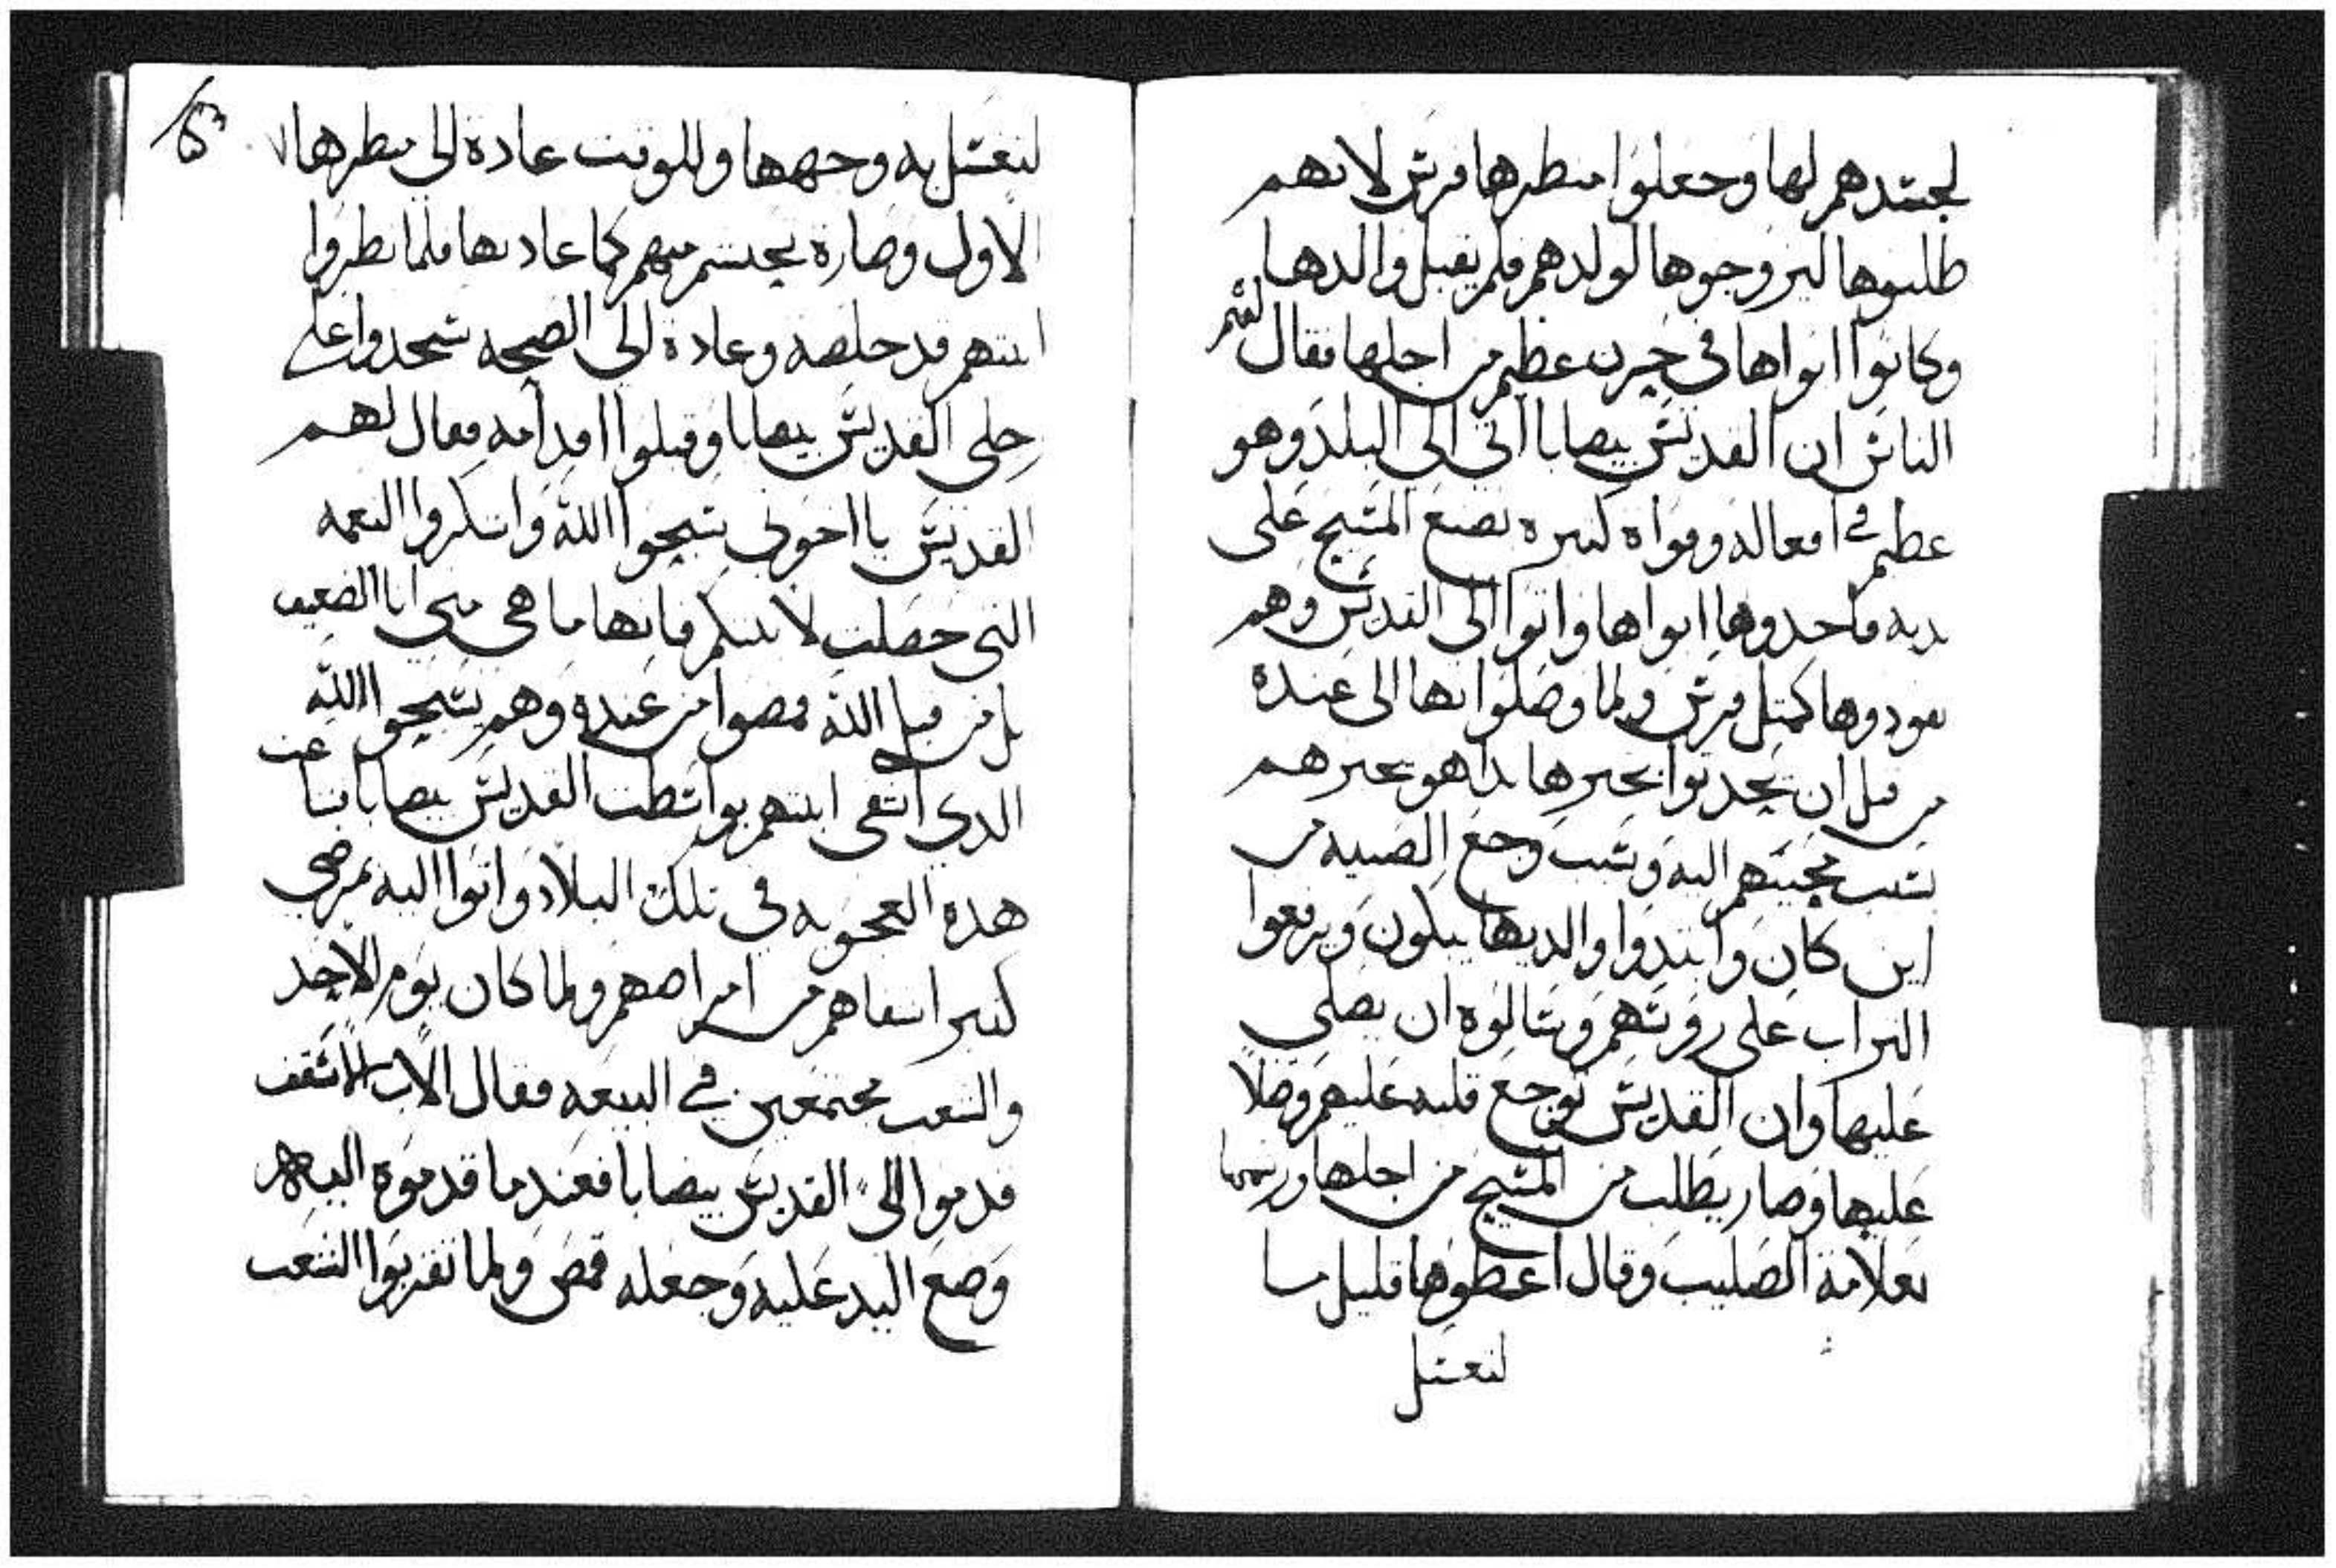 لجسدهم لها وجعلوا منظرها فرس لانهم
طلبوها ليزوجوها لولدهم فلم يقبل والدها
وكانوا ابواها في حزن عظيم من اجلها فقال لهم
الناس ان القديس بيصابا اتى الى البلد وهو
عظيم في افعاله وقواة كثيره يصنع المسيح على
يديه فاخدوها ابواها واتوا الى القديس وهم
يقودوها كمتل فرس ولما وصلوا بها الى عنده
من قبل ان يحدتوا بخبرها بدا هو يخبرهم
بسبب مجيتهم اليه وسبب وجع الصبيه من
اين كان وابتدوا والديها يبكون ويرفعوا
التراب على روسهم ويسالوه ان يصلي
عليها وان القديس توجع قلبه عليهم وصلا
عليها وصار يطلب من المسيح من اجلها ورشمها
بعلامة الصليب وقال اعطوها قليل ما
لتغتسل
لتغتسل به وجهها وللوقت عادة الى منظرها
الاول وصارة بجسم مبهم كما عادتها فلما نظروا
ابنتهم قد خلصة وعادة الى الصحه سجدوا على
رجلى القديس بيصابا وقبلوا اقدامه فقال لهم
القديس يا اخوتى سبحوا الله واشكروا النعمه
التى حصلت لابنتكم فانها ما هي منى انا الضعيف
بل من قبل الله فمضوا من عنده وهم يسبحوا الله
الدي اشفى ابنتهم بواسطت القديس بيصابا شاعت
هده العجوبه في تلك البلاد واتوا اليه بمرضى
كتير اشفاهم من امراضهم ولما كان يوم الاحد
والشعب مجتمعين في البيعه فقال الاب الاسقف
قدموا الى القديس بيصابا فعندما قدموه اليه
وضع اليد عليه وجعله قمص ولما تقربوا الشعب